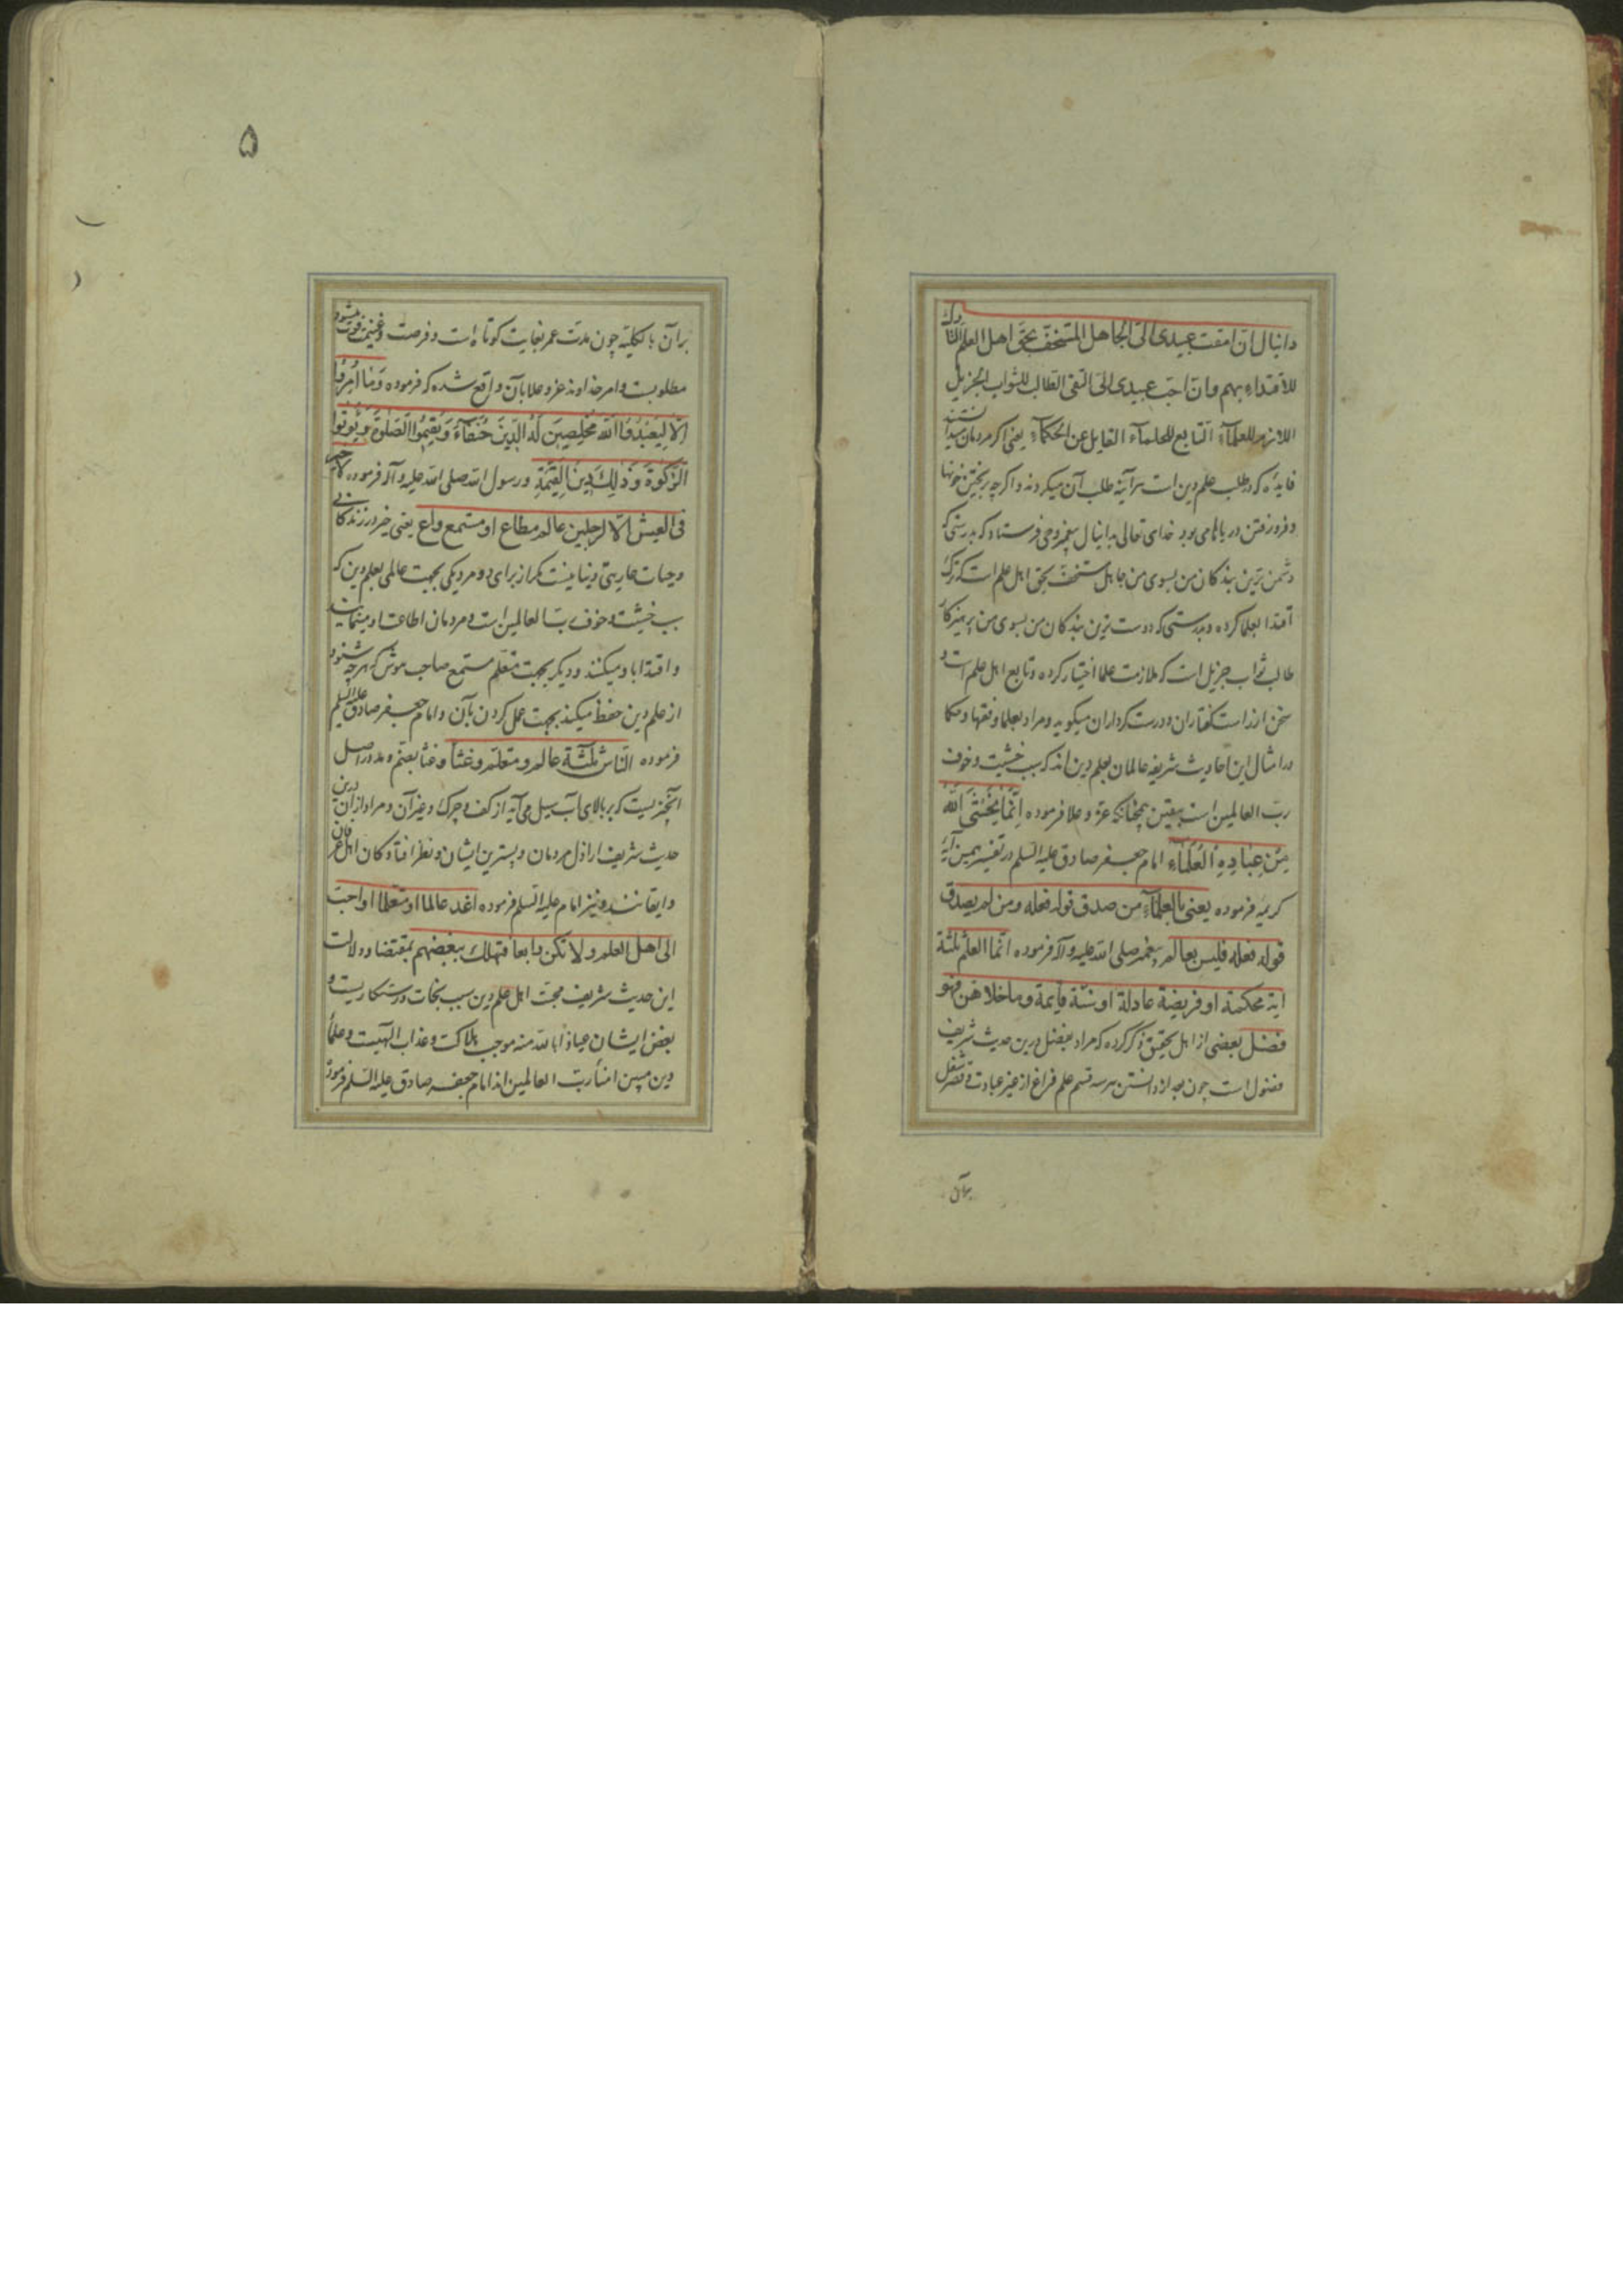 دانیال ان امقت عبیدی الی الجاهل المستخف بحق اهل العلم التارک
للاقتداء بهم و ان احب عبیدی الی التقی الطالب للثواب الجزیل
اللازم للعلماء التابع للحلماء القایل عن الحکماء یعنی اگر مردمان میدانستند
فایده که در طلب علم دین است هر آینه طلب آن میکردند و اگر چه بریختن خونها
و فرو رفتن در دریاها می بود خدای تعالی بدانیال پیغمبر وحی فرستاد که بدرستی که
دشمن ترین بندکان من بسوی من جاهل مستخف بحق اهل علم است که ترک
اقتدا بعلما کرده و بدرستی که دوست ترین بندکان من بسوی من پرهیزکار
طالب ثواب جزیل است که ملازمت علما اختیار کرده و تابع اهل علم است و
سخن از راست کفتاران و درست کرداران میکوید و مراد بعلما و فقها و حکما
در امثال این احادیث شریفه عالمان بعلم دین اند که سبب خشیت و خوف
رب العالمین است بیقین چنانکه عز و علا فرموده اِنَّمَا یَخْشَی اللهَ
مِنْ عِبَادِهِ الْعُلَمَاءُ امام جعفر صادق علیه السلم در تفسیر همین آیهٔ
کریمه فرموده یعنی بالعلماء من صدق قوله فعله و من لم یصدق
قوله فعله فلیس بعالم پیغمبر صلی الله علیه و آله فرموده انما العلم ثلثة
ایة محکمة او فریضة عادلة او سنة قایمة و ما خلا هن فهو
فضل بعضی از اهل تحقیق ذکر کرده که مراد بفضل درین حدیث شریف
فضول است چون بعد از دانستن هر سه قسم علم فراغ از غیر عبادت و قصر شغل
برآن
۵
برآن بالکلیه چون مدت عمر بغایت کوتاه است و فرصت و غنیمت فوت میشود
مطلوبست و امر خداوند عز و علا بآن واقع شده که فرموده وَمَا اُمِرُوا
اِلَّا لِیَعْبُدُوا اللهَ مُخْلِصِینَ لَهُ الدِّینَ حُنَفَاءَ وَیُقِیمُوا الصَّلٰوةَ وَیُؤْتُوا
الزَّکٰوةَ وَذٰلِکَ دِینُ الْقَیِّمَةِ و رسول الله صلی الله علیه و آله فرموده لا خیر
فی العیش الا لرجلین عالم مطاع او مستمع واع یعنی خیر در زندکانی
و حیات عاریتی دنیا نیست مکر از برای دو مرد یکی بجهت عالمی بعلم دین که
سبب خشیت و خوف رب العالمین است و مردمان اطاعت او مینمایند
و اقتدا باو میکنند و دیکر بجهت متعلم مستمع صاحب هوش که هرچه شنود
از علم دین حفظ میکند بجهت عمل کردن بآن و امام جعفر صادق علیه السلم
فرموده الناس ثلثة عالم و متعلم و غثا و غثا بضم و مد در اصل
آنچیزیست که بر بالای آب سیل می آید از کف و چرک و غیر آن و مراد از آن درین
حدیث شریف اراذل مردمان و پسترین ایشان و نظر افتادکان اهل عرفان
و ایقانند و نیز امام علیه السلم فرموده اغد عالما او متعلما او احبب
الی اهل العلم و لا تکن رابعا فتهلک ببغضهم بمقتضا و دلالت
این حدیث شریف محبت اهل علم دین سبب نجات و رستکاریست و
بغض ایشان عیاذا بالله منه موجب هلاکت و عذاب الهیست و علمأ
دین مبین امنأ رب العالمین اند امام جعفر صادق علیه السلم فرموده